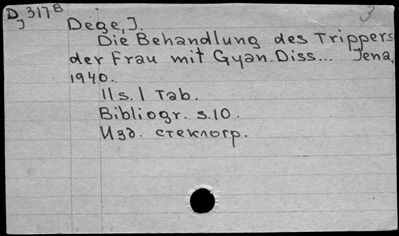 D, 317 B
J
3
Dege, J.
Die Behandlung des Trippers
der Frau mit Gyan. Diss... Jena,
1940.
11 s. 1 Tab.
Bibliogr. s. 10.
Изд. стеклогр.